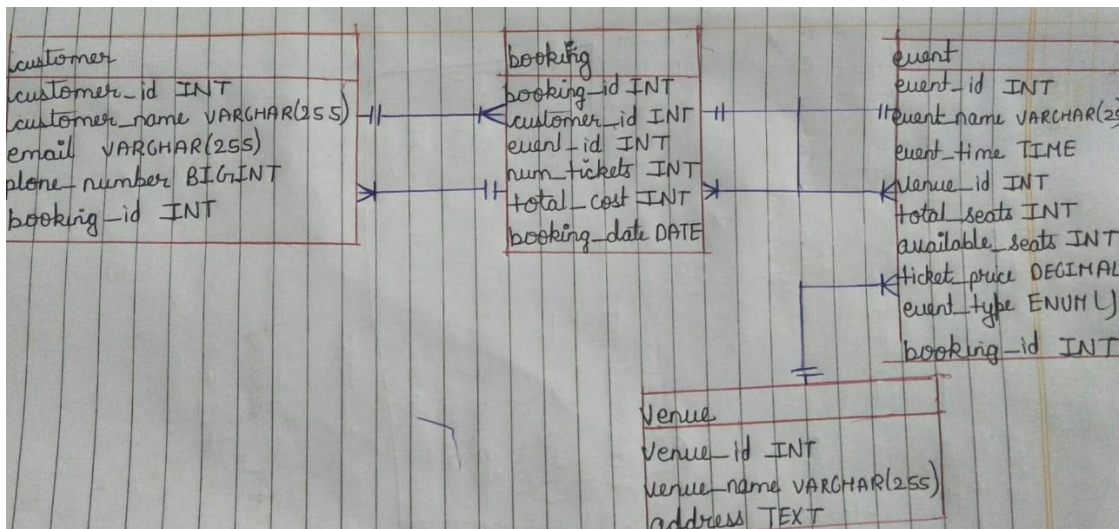 customer
customer_id INT
customer_name VARCHAR(255)
email VARCHAR(255)
plone_number BIGINT
booking_id INT
booking
booking_id INT
customer_id INT
event_id INT
num_tickets INT
total_cost INT
booking_date DATE
event
event_id INT
event_name VARCHAR(25
event_time TIME
venue_id INT
total_seats INT
available_seats INT
ticket_price DECIMAL
event_type ENUM()
booking_id INT
Venue
Venue_id INT
venue_name VARCHAR(255)
address TEXT